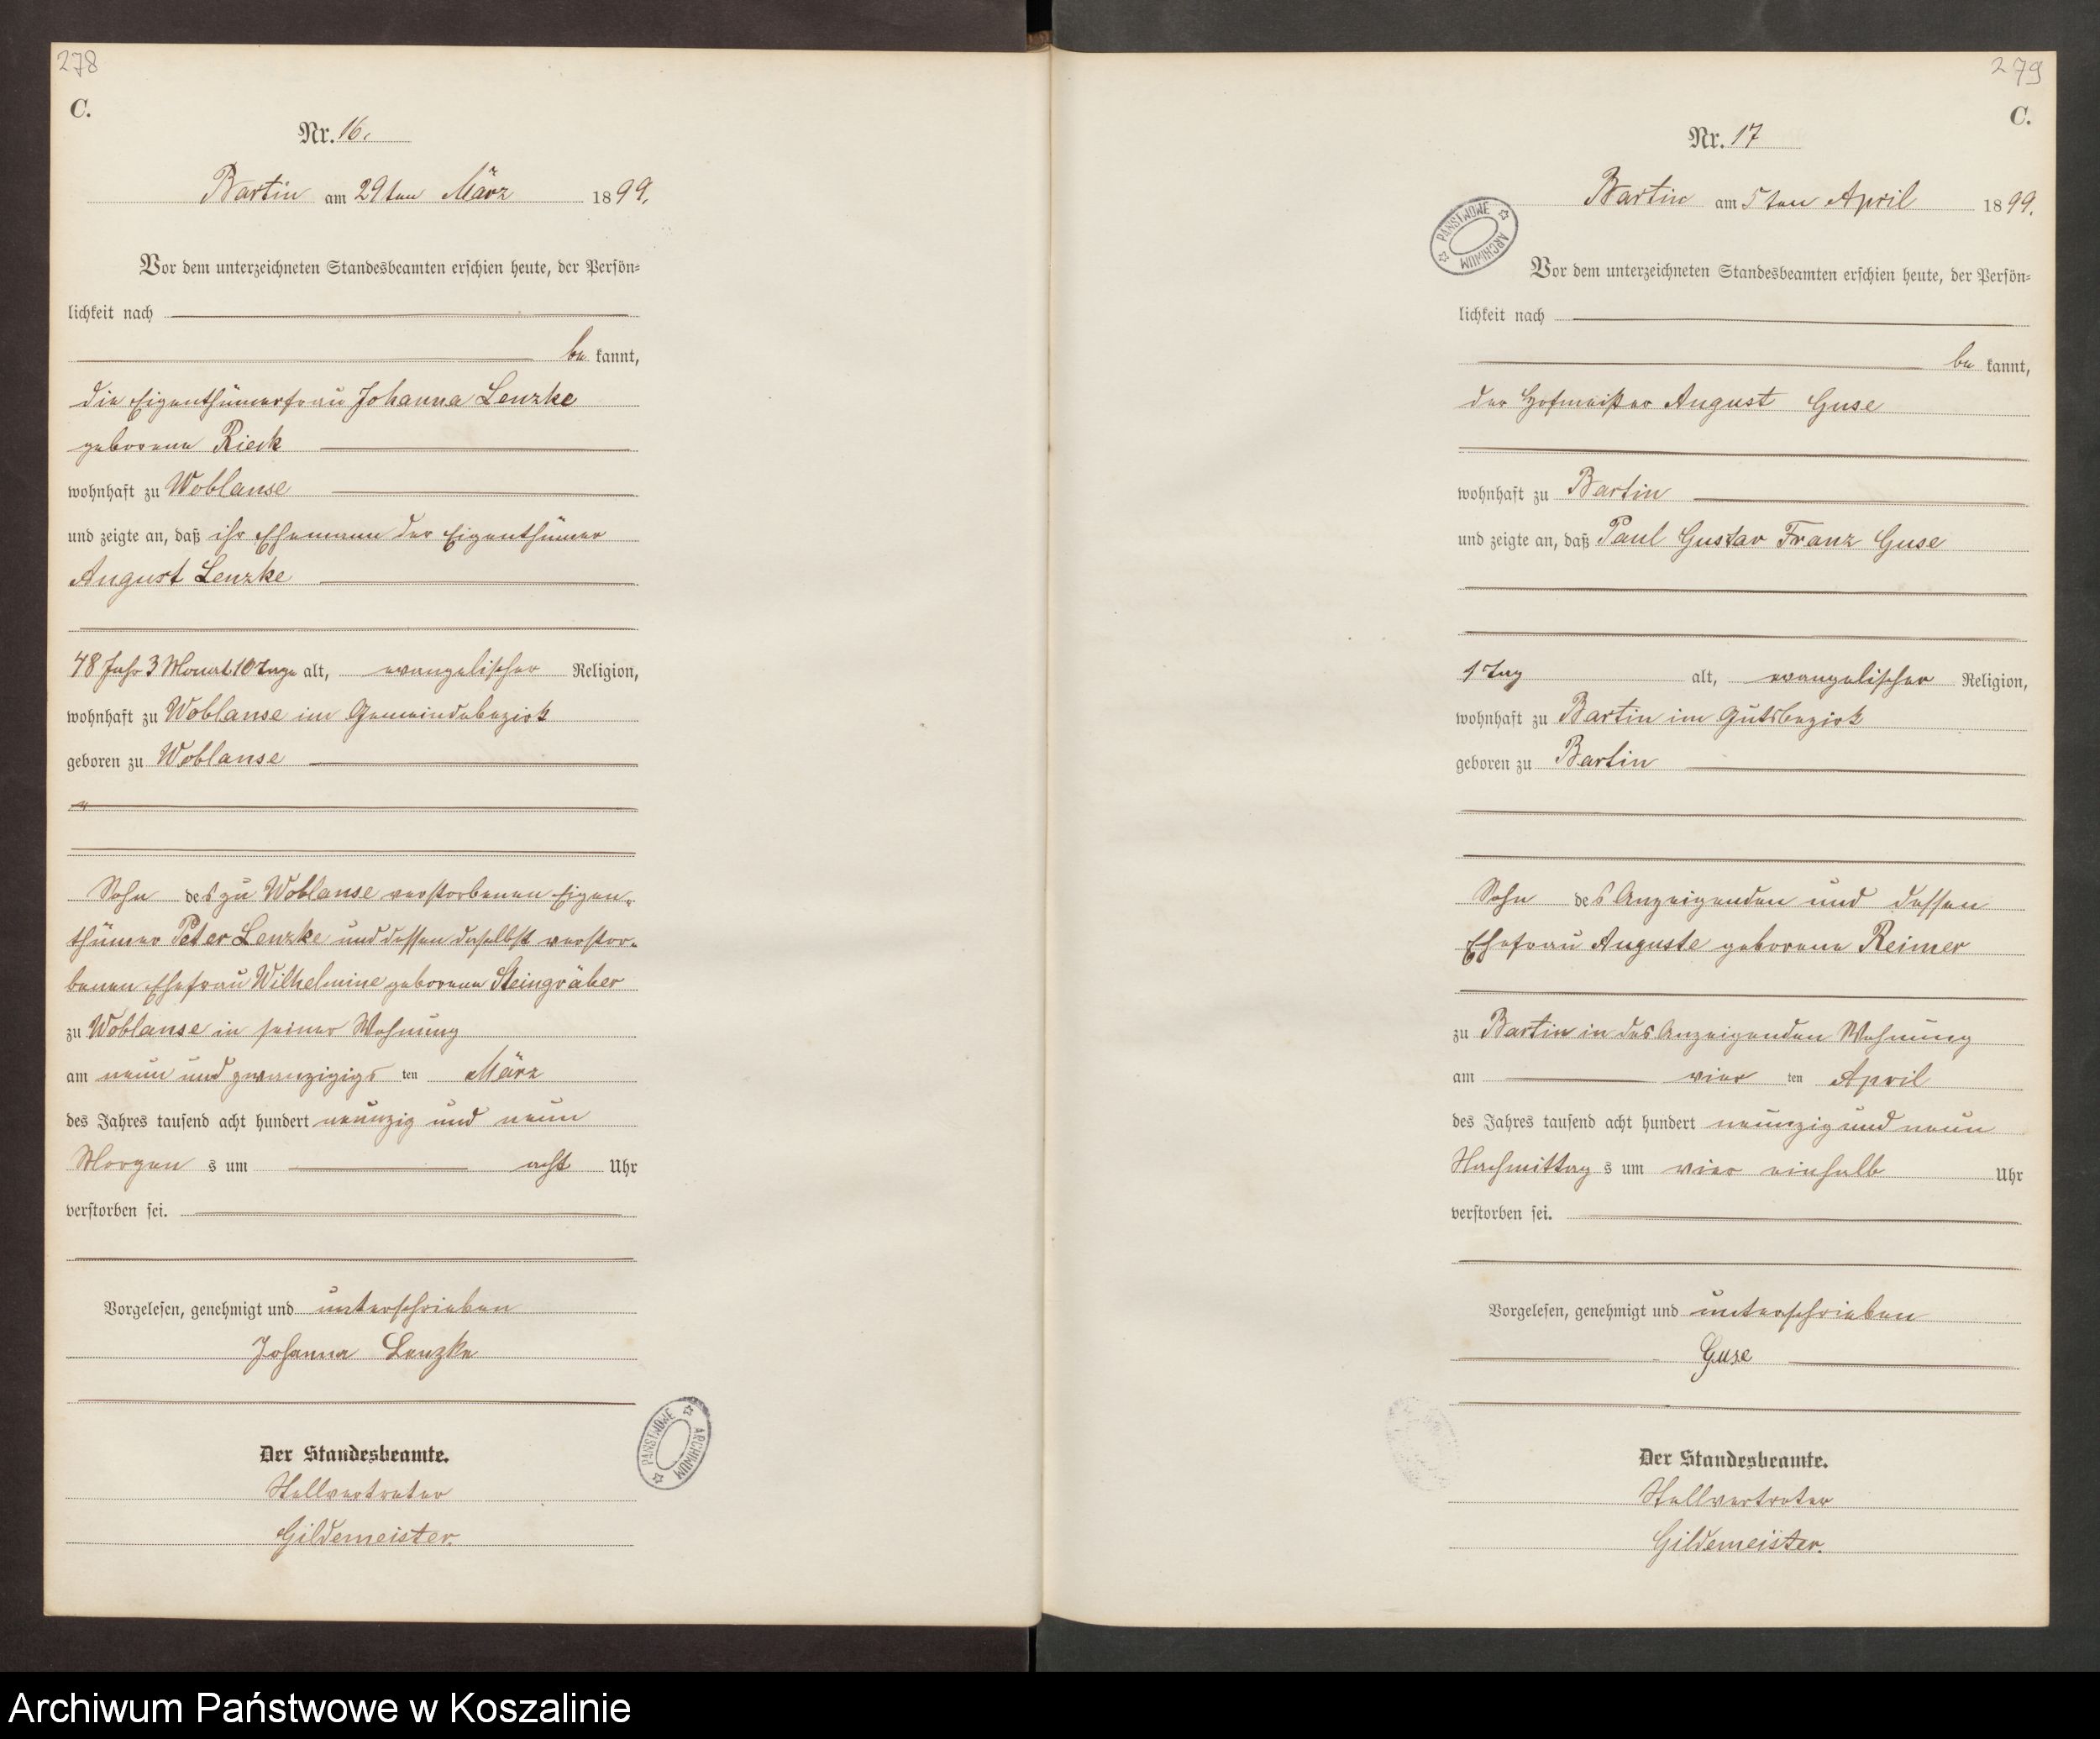 278
C.
Nr. 16.
Bartin am 29ten März 1899.
Vor dem unterzeichneten Standesbeamten erschien heute, der Persön-
lichkeit nach
be kannt,
die Eigenthümerfrau Johanna Lenzke
geborene Rieck
wohnhaft zu Woblanse
und zeigte an, daß ihr Ehemann der Eigenthümer
August Lenzke
48 Jahr 3 Monat 10 Tage alt, evangelischer Religion,
wohnhaft zu Woblanse im Gemeindebezirk
geboren zu Woblanse
Sohn des zu Woblanse verstorbenen Eigen-
thümer Peter Lenzke und dessen daselbst verstor-
benen Ehefrau Wilhelmine geborene Steingräber
zu Woblanse in seiner Wohnung
am neun und zwanzigigs ten März
des Jahres tausend acht hundert neunzig und neun
Morgen s um acht Uhr
verstorben sei.
Vorgelesen, genehmigt und unterschrieben
Johanna Lenzke
PAŃSTWOWE ARCHIWUM
Der Standesbeamte.
Stellvertreter
Gildemeister.
279
C.
Nr. 17
Bartin am 5ten April 1899.
PAŃSTWOWE ARCHIWUM
Vor dem unterzeichneten Standesbeamten erschien heute, der Persön-
lichkeit nach
be kannt,
der Hofmeister August Guse
wohnhaft zu Bartin
und zeigte an, daß Paul Gustav Franz Guse
1 Tag alt, evangelischer Religion,
wohnhaft zu Bartin im Gutsbezirk
geboren zu Bartin
Sohn des Anzeigenden und dessen
Ehefrau Auguste geborene Reimer
zu Bartin in des Anzeigenden Wohnung
am vier ten April
des Jahres tausend acht hundert neunzig und neun
Nachmittag s um vier einhalb Uhr
verstorben sei.
Vorgelesen, genehmigt und unterschrieben
Guse
Der Standesbeamte.
Stellvertreter
Gildemeister.
Archiwum Państwowe w Koszalinie